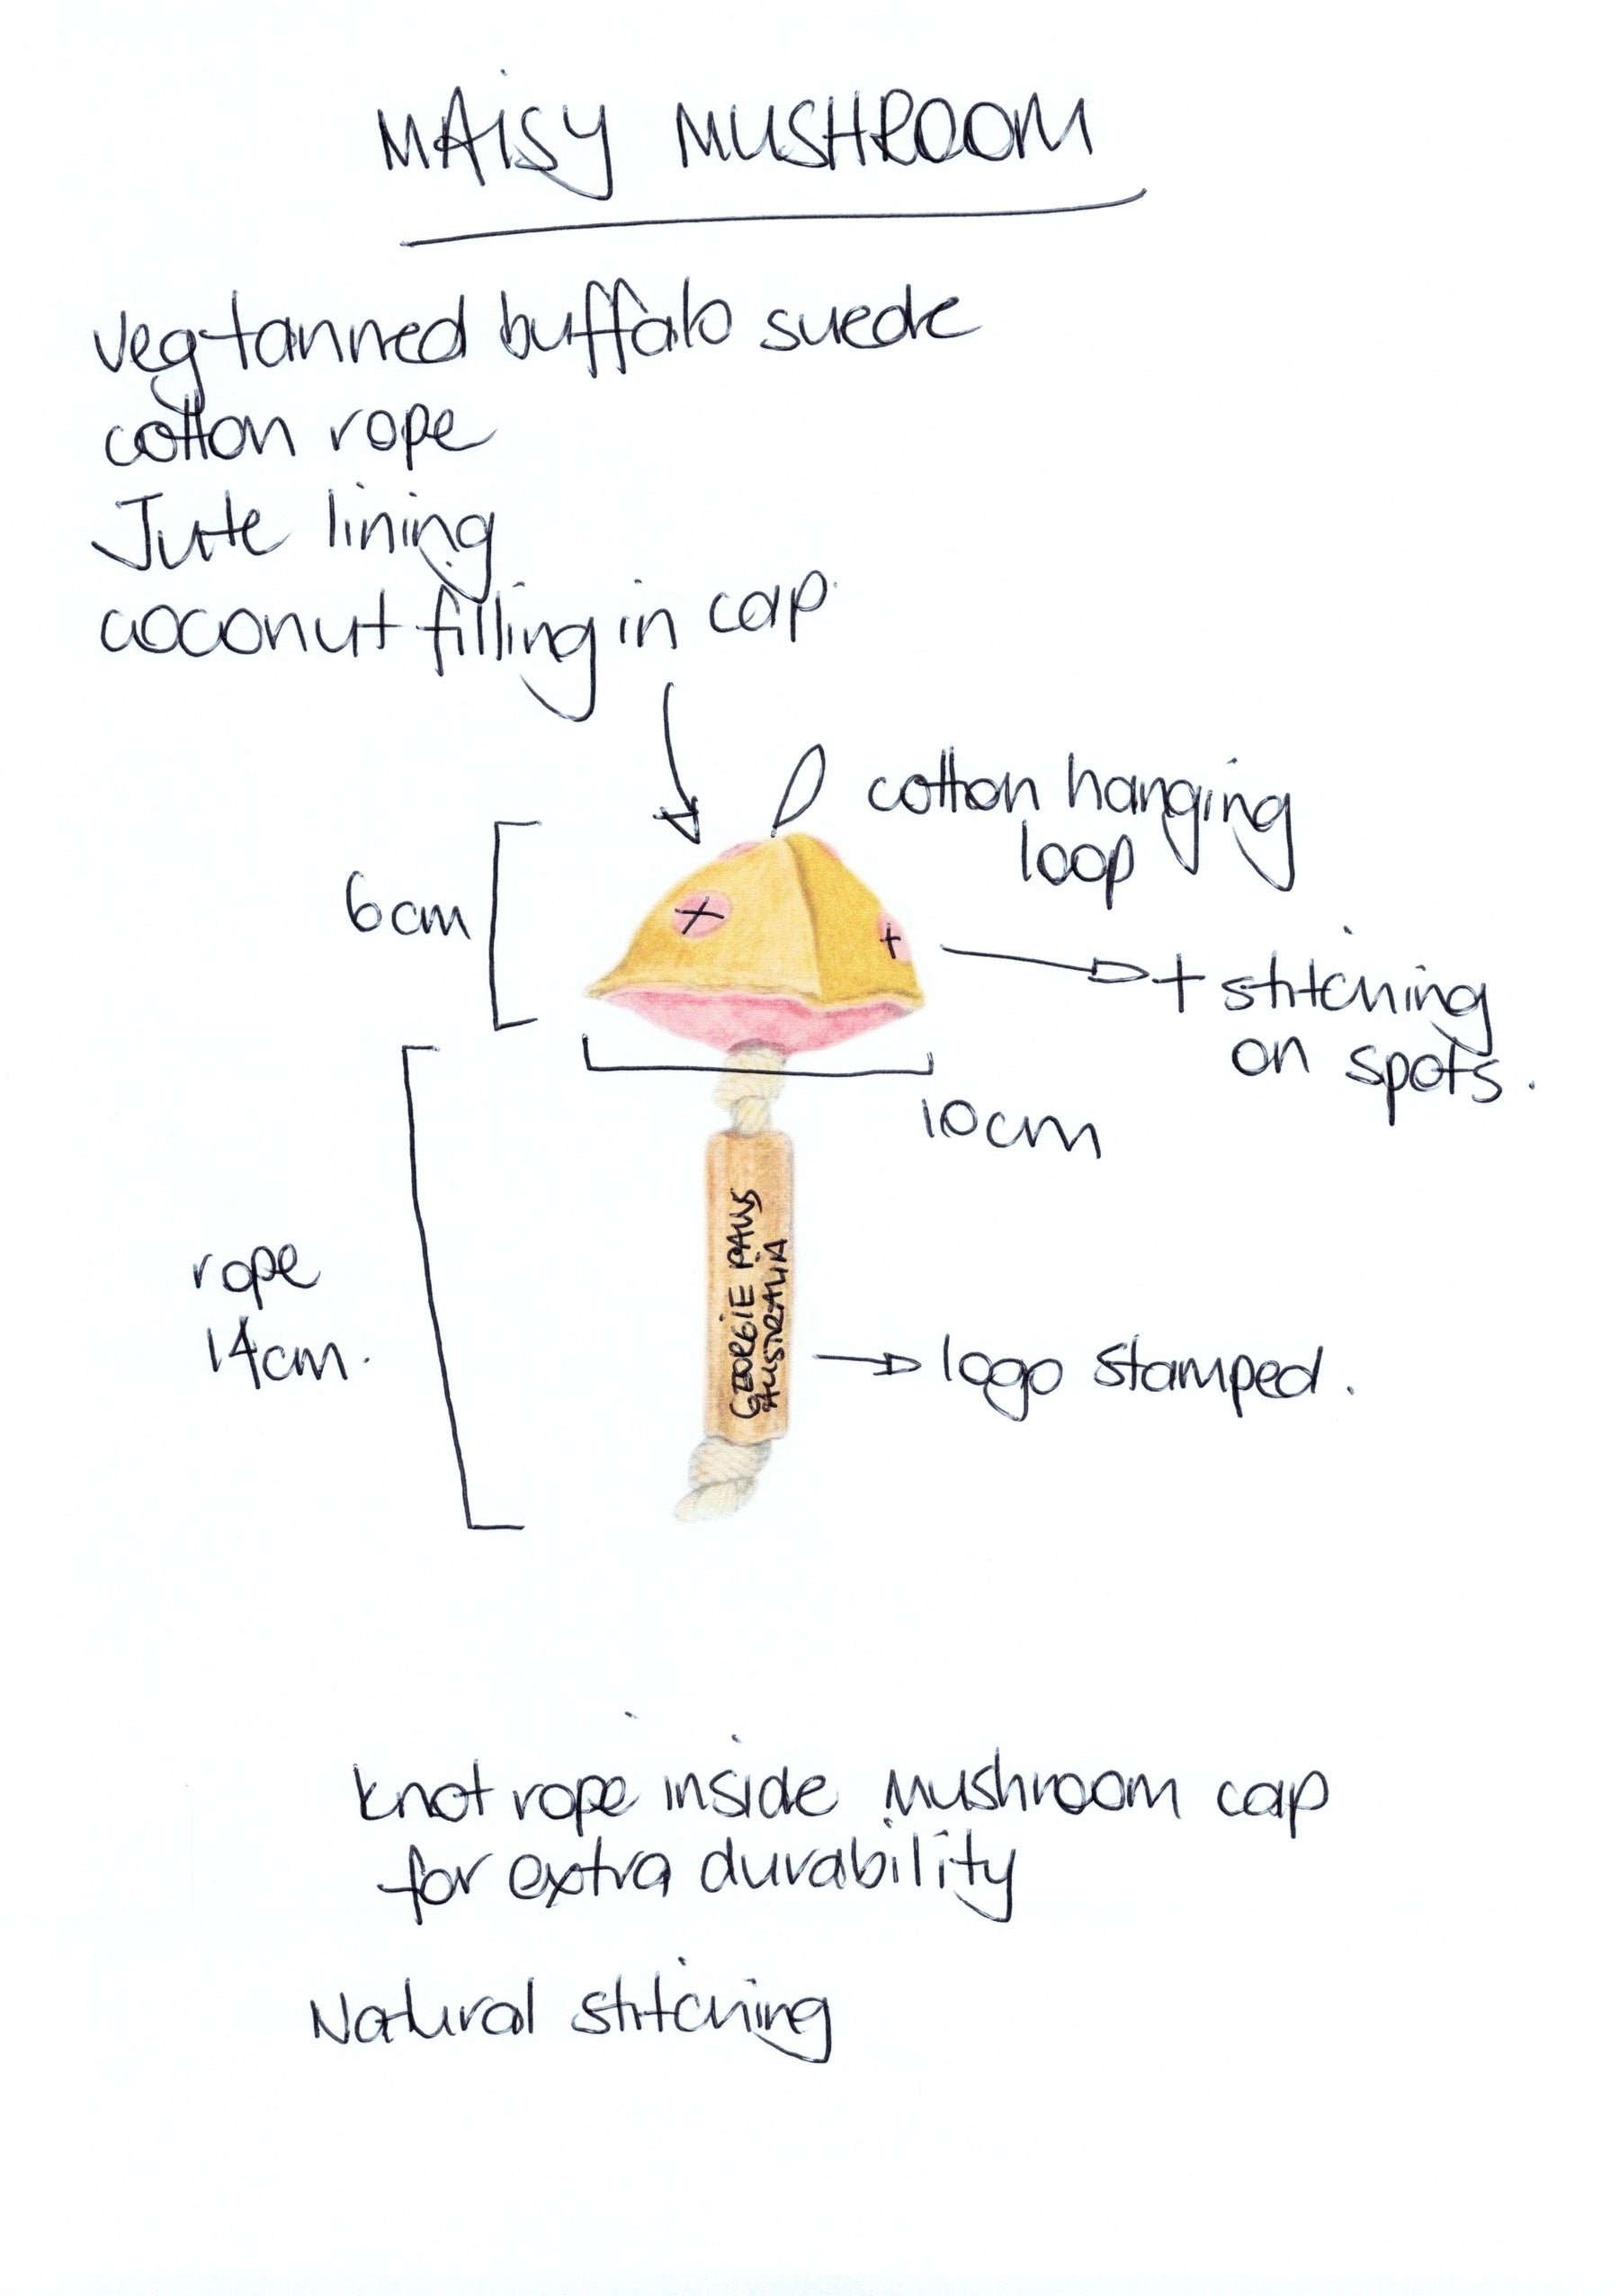 MAISY MUSHROOM
Veg-tanned buffalo suede
cotton rope
Jute lining
coconut filling in cap.
cotton hanging
loop
6cm
+ stitching
on spots.
10cm
rope
14cm.
GEORGIE PAWS
AUSTRALIA
logo stamped.
knot rope inside mushroom cap
for extra durability
Natural stitching